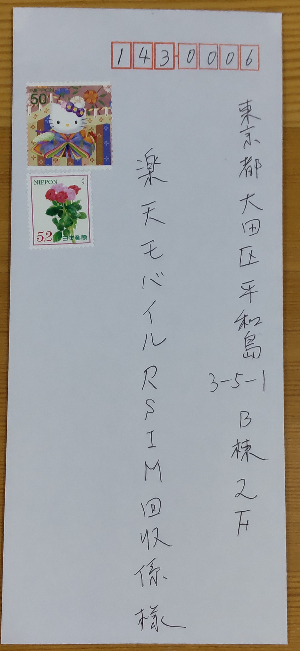 1430006
50
NIPPON
52
東京都大田区平和島
3-5-1 B棟2F
楽天モバイルRSIM回収係様